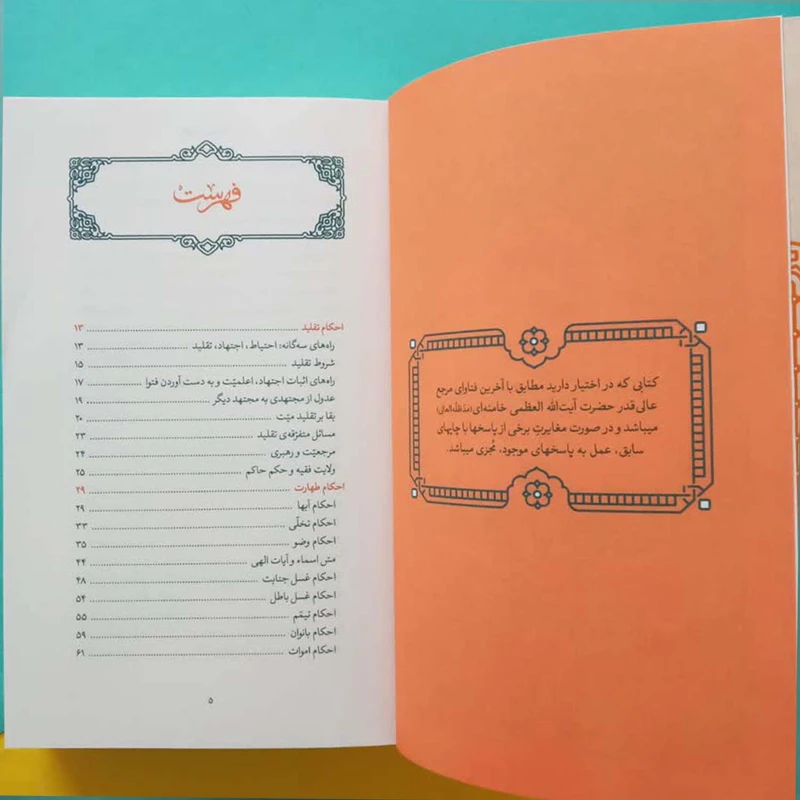 کتابی که در اختیار دارید مطابق با آخرین فتاوای مرجع
عالی‌قدر حضرت آیت‌الله العظمی خامنه‌ای (مدّظلّه‌العالی)
میباشد و در صورت مغایرتِ برخی از پاسخها با چاپهای
سابق، عمل به پاسخهای موجود، مُجزی میباشد.
فهرست
احکام تقلید ........ ۱۳
راه‌های سه‌گانه: احتیاط، اجتهاد، تقلید ........ ۱۳
شروط تقلید ........ ۱۵
راه‌های اثبات اجتهاد، اعلمیّت و به دست آوردن فتوا ........ ۱۷
عدول از مجتهدی به مجتهد دیگر ........ ۱۹
بقا بر تقلید میّت ........ ۲۰
مسائل متفرّقه‌ی تقلید ........ ۲۳
مرجعیّت و رهبری ........ ۲۴
ولایت فقیه و حکم حاکم ........ ۲۵
احکام طهارت ........ ۲۹
احکام آبها ........ ۲۹
احکام تخلّی ........ ۳۳
احکام وضو ........ ۳۵
مسّ اسماء و آیات الهی ........ ۴۴
احکام غسل جنابت ........ ۴۸
احکام غسل باطل ........ ۵۴
احکام تیمّم ........ ۵۵
احکام بانوان ........ ۵۹
احکام اموات ........ ۶۱
۵